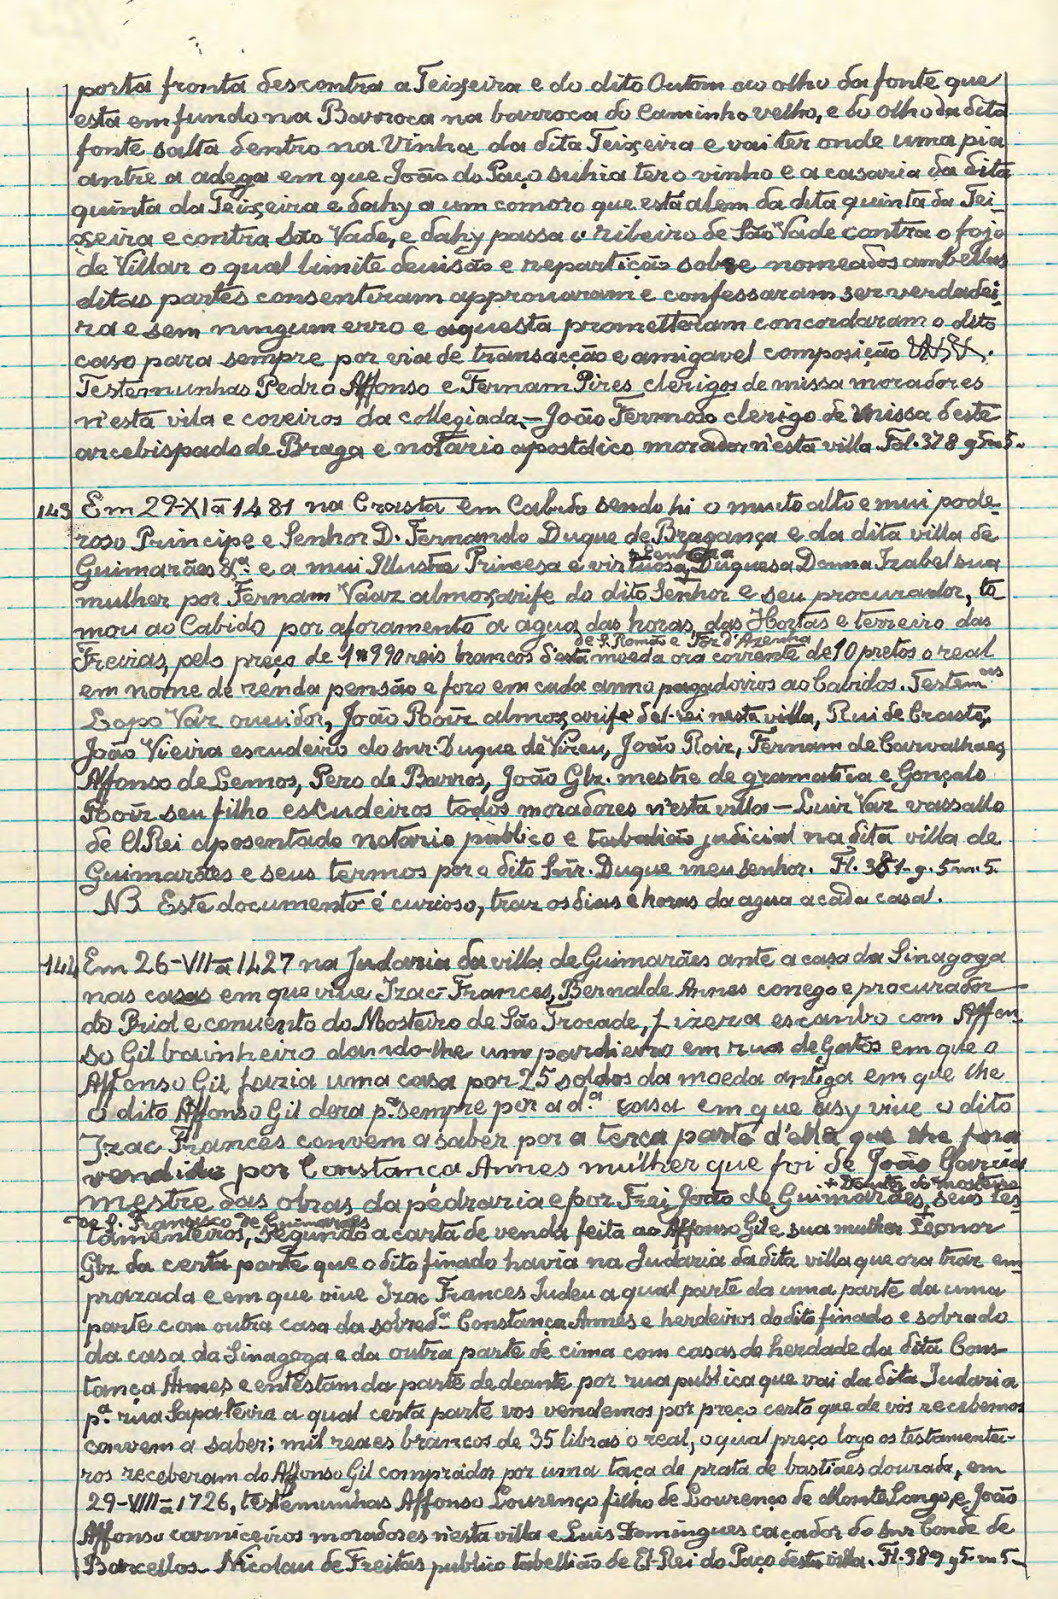 porta fronta descontra a Teixeira e do dito Outom ao olho da fonte que
está em fundo na Barroca na barroca do Caminho velho, e do olho da dita
fonte salta dentro na Vinha da dita Teixeira e vai ter onde uma pia
antre a adega em que João do Paço suhia ter o vinho e a casaria da dita
quinta da Teixeira e dahy a um comoro que está alem da dita quinta da Tei-
xeira e contra São Vade, e dahy passa o ribeiro de São Vade contra o fojo
de Villar o qual limite deuisão e repartição sobre nomeados ambellas
ditas partes consentiram approuaram e confessaram ser verdadei-
ra e sem ningum erro e aquesta prometteram concordaram o dito
caso para sempre por via de transacção e amigavel composição
Testemunhas Pedro Affonso e Fernam Pires clerigos de missa moradores
n'esta vila e coreiros da collegiada.- João Fermoso clerigo de missa deste
arcebispado de Braga e notario apostolico morador n'esta villa. Fol. 378 g 5 m 5.
143 Em 29-XI-1481 na Crasta em Cabido sendo hi o muito alto e mui pode-
roso Principe e Senhor D. Fernando Duque de Bragança e da dita villa de
Guimarães &ª e a mui Illustre Princesa e virtuosa Senhora Duquesa Donna Izabel sua
mulher por Fernam Vaaz almoxarife do dito Senhor e seu procurador, to-
mou ao Cabido por aforamento a agua das horas das Hortas e terreiro das
de S. Romão e For d'Azenha
Freiras, pelo preço de 1$990 reis brancos d'esta moeda ora corrente de 10 pretos o real
em nome de renda pensão e foro em cada anno pagadoiros ao Cabidos. Testem.as
Lopo Vaz ouuidor, João Roiz almoxarife del-rei nesta villa, Rui de Crasto,
João Vieira escudeiro do snr. Duque de Vizeu, João Roiz, Fernam de Carvalhaes,
Affonso de Lemos, Pero de Barros, João Glz. mestre de gramatica e Gonçalo
Roiz seu filho escudeiros todos moradores n'esta villa - Luiz Vaz vassallo
de ElRei aposentado notario publico e tabalião judicial na dita villa de
Guimarães e seus termos por o dito Snr. Duque meu senhor. Fl. 381. g. 5 m. 5.
NB Este documento é curioso, traz os dias e horas da agua a cada casal.
144 Em 26-VII-1427 na Judaria da villa de Guimarães ante a casa da Sinagoga
nas casas em que vive Izac Frances, Bernalde Annes conego e procurador
do Priol e conuento do Mosteiro de São Trocade, fizera escambo com Affon-
so Gil bainheiro dando-lhe um pardieiro em rua de Gatos em que o
Affonso Gil fazia uma casa por 25 soldos da moeda antiga em que lhe
o dito Affonso Gil dera p.ª sempre por a d.ª casa em que asy vive o dito
Izac Frances convem a saber por a terça parte d'ella que lhe fora
vendida por Constança Annes mulher que foi de João Garcia
+ Doutor do mosteiro
mestre das obras da pedraria e por Frei João de Guimarães, seus tes-
de S. Francisco de Guimarães
tamenteiros, segundo a carta de venda feita ao Affonso Gil e sua mulher Leonor
Glz da certa parte que o dito finado havia na Judaria da dita villa que ora traz em-
prazada e em que vive Izac Frances Judeu a qual parte da uma parte da uma
parte com outra casa da sobred.ª Constança Annes e herdeiros do dito finado e sobrado
da casa da Sinagoga e da outra parte de cima com casas de herdade da dita Cons-
tança Annes e entestam da parte de deante por rua publica que vai da dita Judaria
p.ª rua Sapateira a qual certa parte vos vendemos por preço certo que de vós recebemos
convem a saber; mil reaes brancos de 35 libras o real, o qual preço logo os testamentei-
ros receberam do Affonso Gil comprador por uma taça de prata de bastiães dourada, em
29-VIII-1726, testemunhas Affonso Lourenço filho de Lourenço de Monte Longo, e João
Affonso carniceiros moradores n'esta villa e Luis Domingues caçador do snr Conde de
Barcellos- Nicolau de Freitas publico tabellião de El-Rei do Paço desta villa. Fl. 389 g 5. m 5-